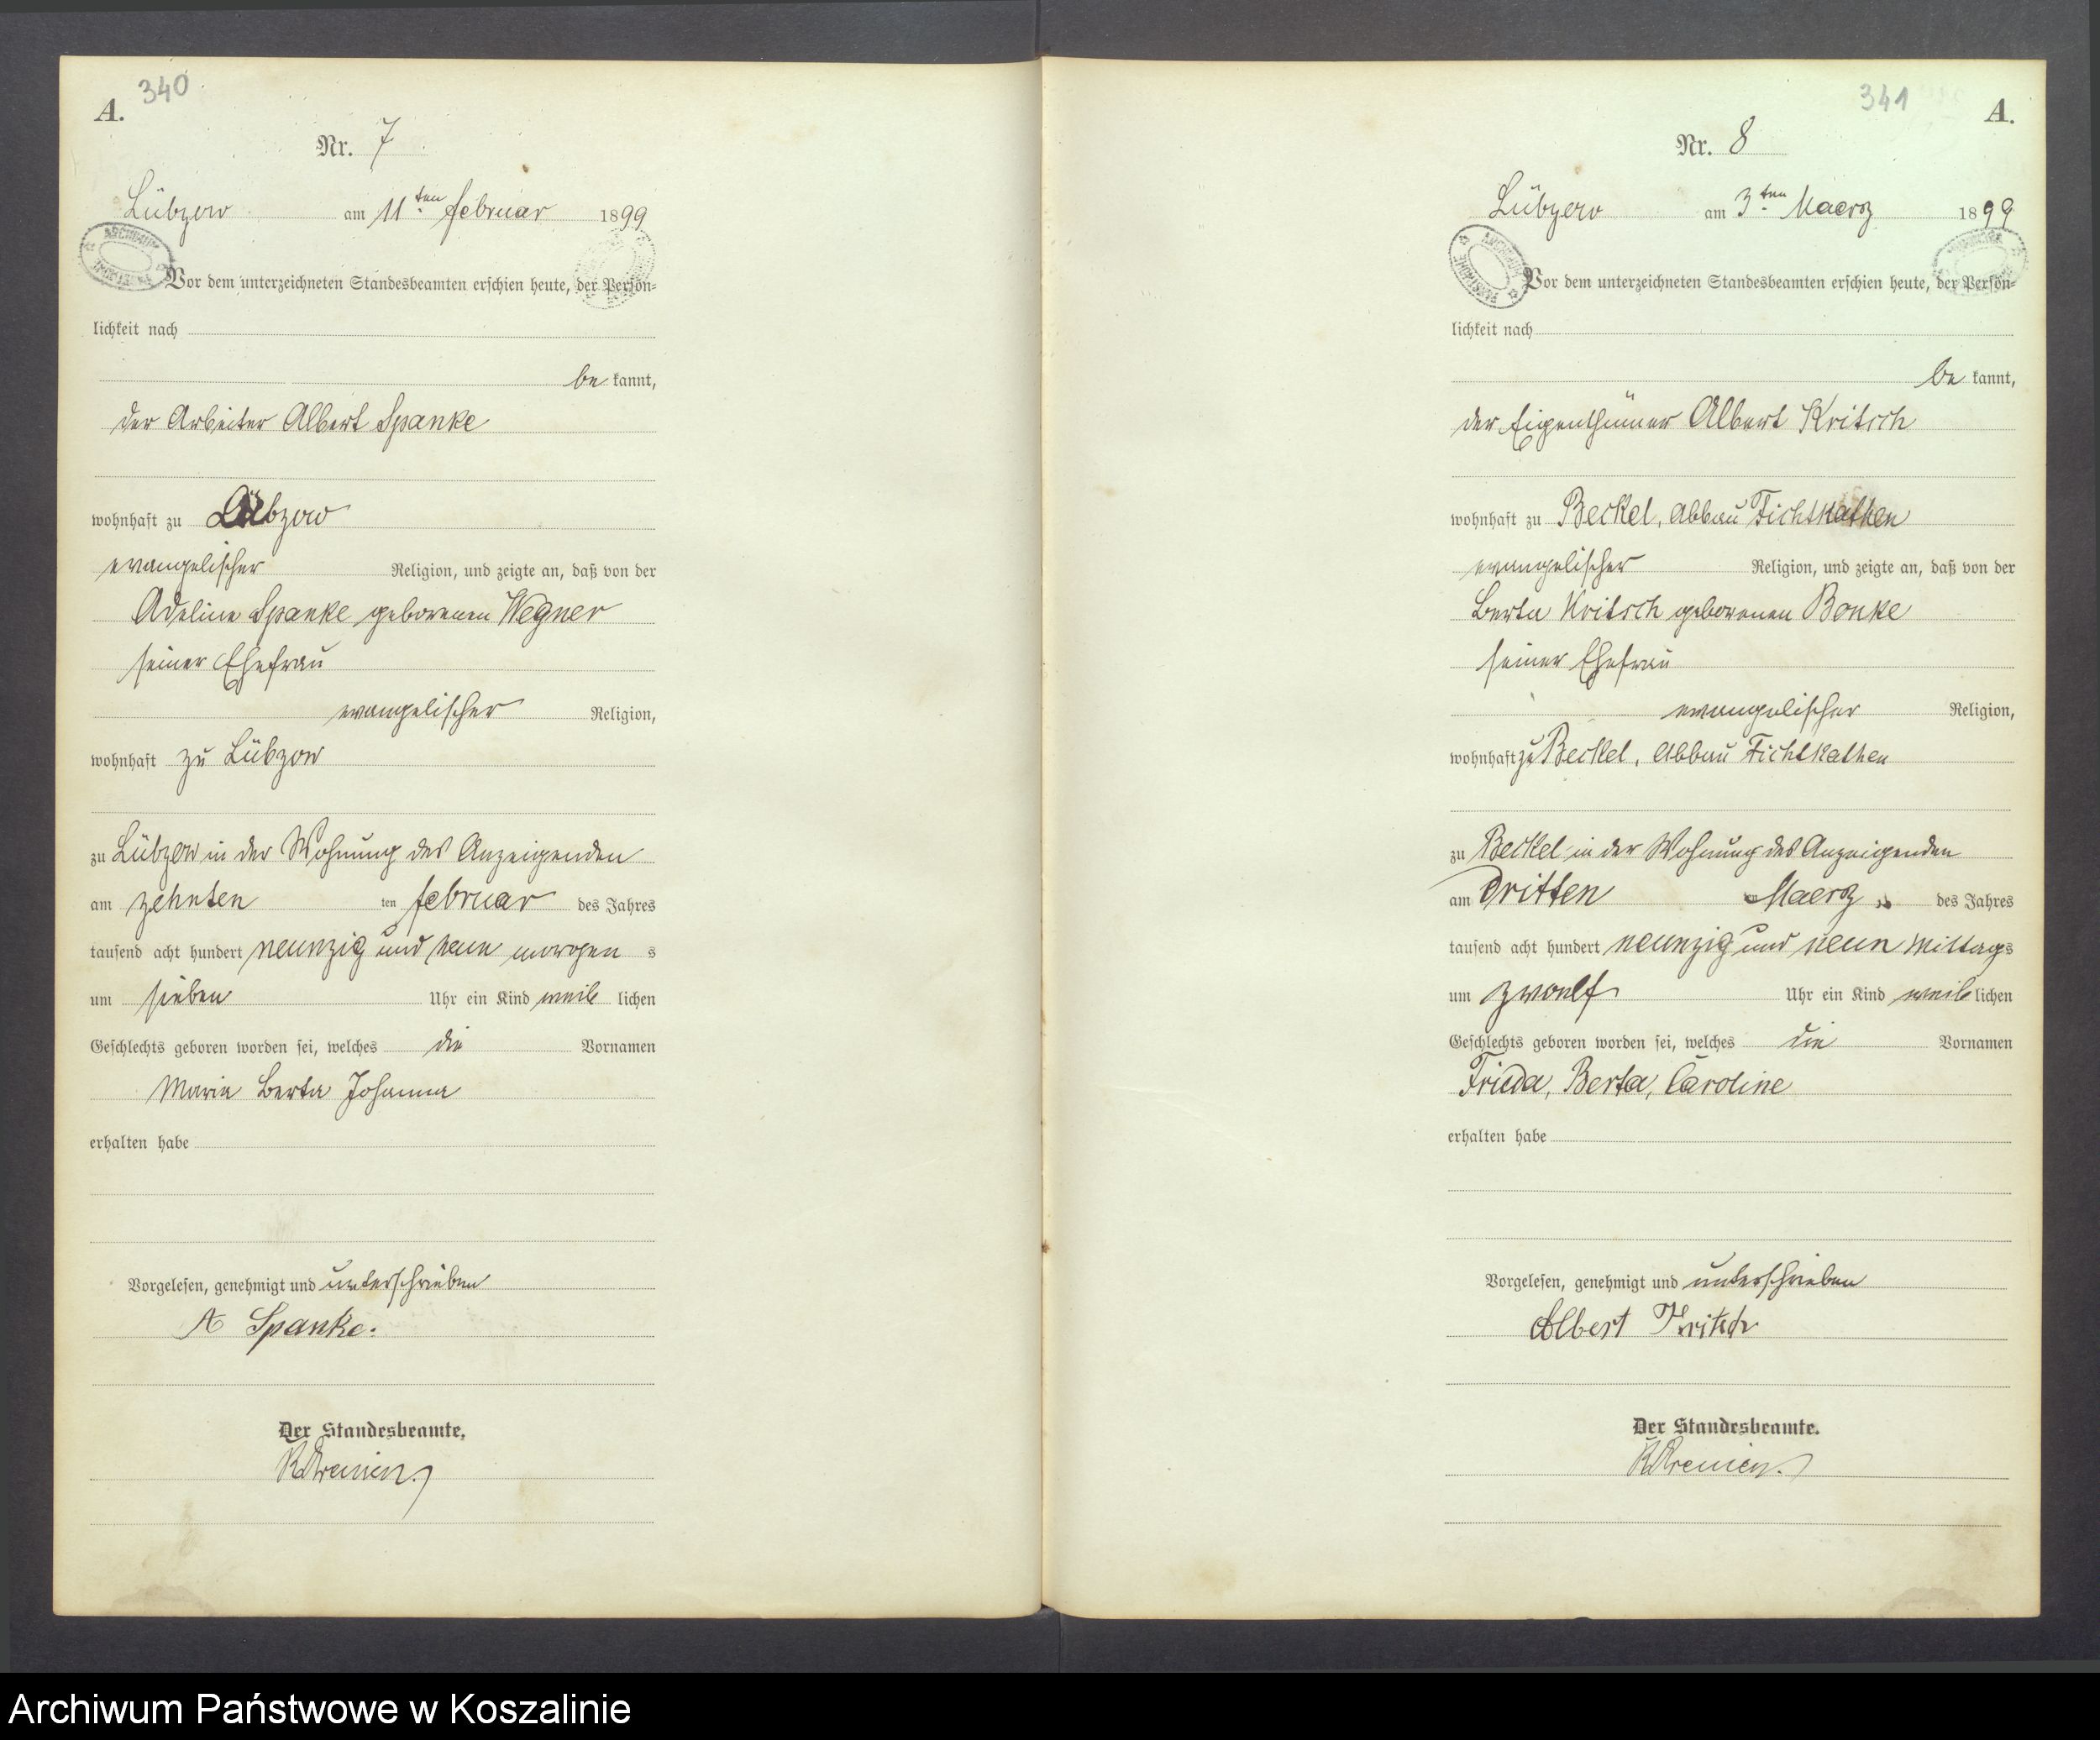 340
A.
Nr. 7
Lübzow am 11ten Februar 1899
Vor dem unterzeichneten Standesbeamten erschien heute, der Persön-
lichkeit nach
be kannt,
der Arbeiter Albert Spanke
wohnhaft zu Lübzow
evangelischer Religion, und zeigte an, daß von der
Adeline Spanke geborenen Wegner
seiner Ehefrau
evangelischer Religion,
wohnhaft zu Lübzow
zu Lübzow in der Wohnung des Anzeigenden
am zehnten ten Februar des Jahres
tausend acht hundert neunzig und neun morgen s
um sieben Uhr ein Kind weib lichen
Geschlechts geboren worden sei, welches die Vornamen
Maria Berta Johanna
erhalten habe
Vorgelesen, genehmigt und unterschrieben
A Spanke.
Der Standesbeamte.
341
A.
Nr. 8
Lübzow am 3ten Maerz 1899
Vor dem unterzeichneten Standesbeamten erschien heute, der Persön-
lichkeit nach
be kannt,
der Eigenthümer Albert Kritsch
wohnhaft zu Beckel, Abbau Fichtkathen
evangelischer Religion, und zeigte an, daß von der
Berta Kritsch geborenen Bonke
seiner Ehefrau
evangelischer Religion,
wohnhaft zu Beckel, Abbau Fichtkathen
zu Beckel in der Wohnung des Anzeigenden
am Dritten Maerz des Jahres
tausend acht hundert neunzig und neun Mittags
um zwoelf Uhr ein Kind weib lichen
Geschlechts geboren worden sei, welches die Vornamen
Frieda, Berta, Caroline
erhalten habe
Vorgelesen, genehmigt und unterschrieben
Albert Kritsch
Der Standesbeamte.
Archiwum Państwowe w Koszalinie